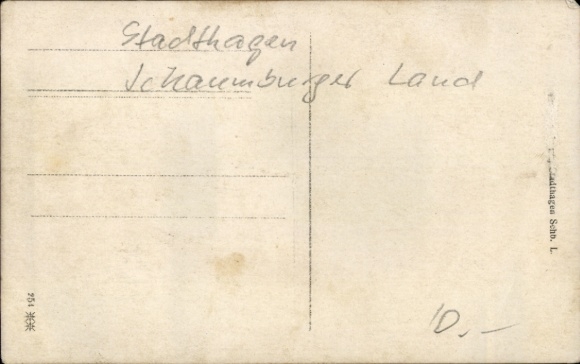 Stadthagen
Schaumburger Land
Stadthagen Schb. L.
10.-
254